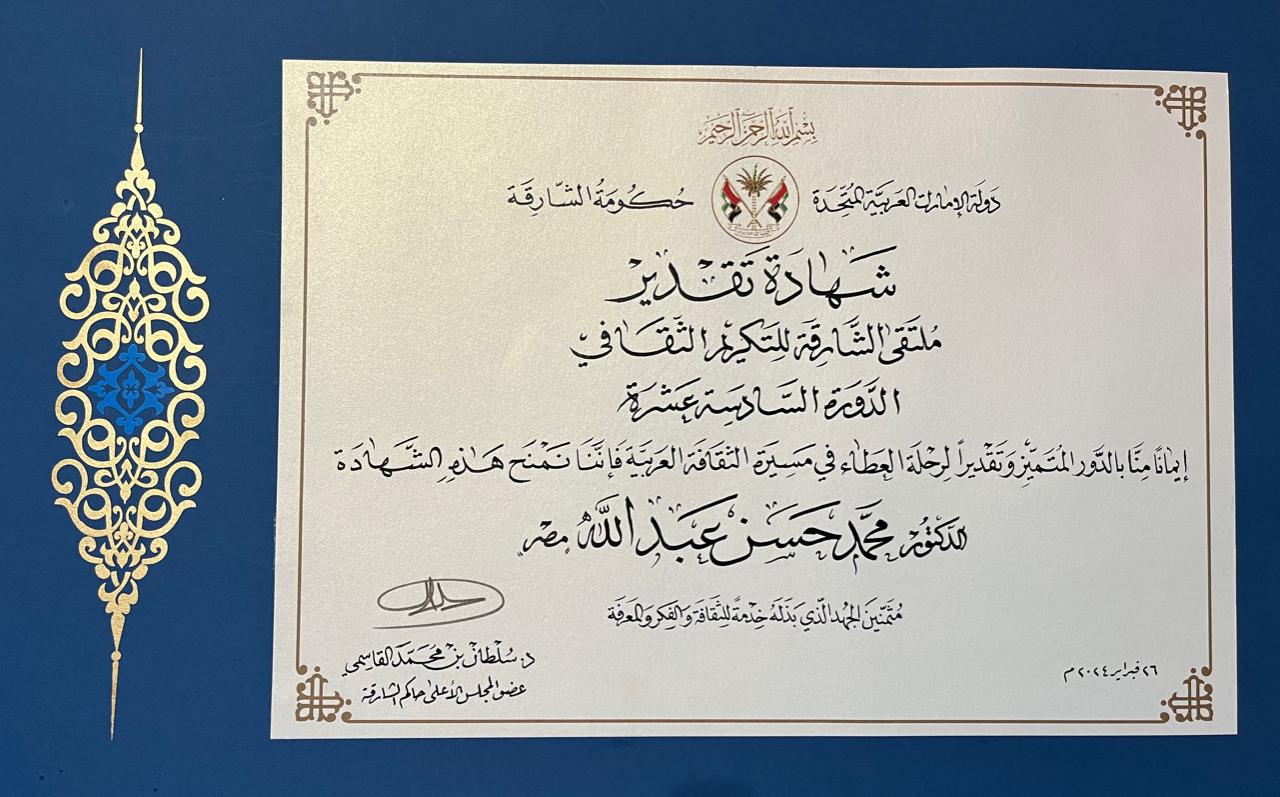 بِسْمِ اللَّهِ الرَّحْمَنِ الرَّحِيمِ
دَولَة الإمَارات العَربيَّة المُتَّحِدَة
حُكُومَةُ الشّارِقَة
شَهَادَة تَقدير
مُلتَقى الشَّارِقَة لِلتَكريم الثّقَافي
الدَّورَة السَّادسَة عَشرَة
إيمَانًا مِنَّا بالدَّور المُتَميّز وَتَقديراً لِرحلَة العَطَاء في مَسيرَة الثقَافَة العَرَبيَّة فَإنَّنَا نَمْنَح هَذِهِ الشَّهَادَة
الدكتور محمَّد حَسَن عَبد اللَّه "مصر"
مُثمّنين الجُهد الّذي بَذَلَهُ خِدمَةً للثّقَافَة وَالفِكر وَالمَعرفَة
د. سُلطَان بن مُحَمَّد القَاسمي
عضو المجلس الأعلى حاكم الشارقة
٢٦ فبراير ٢٠٢٤ م